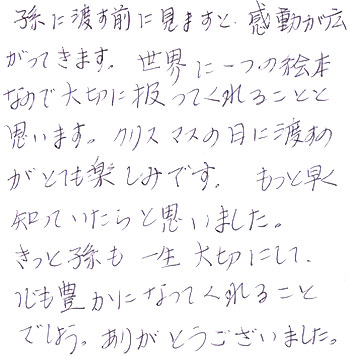 孫に渡す前に見ますと、感動が広
がってきます。世界に一つの絵本
なので大切に扱ってくれることと
思います。クリスマスの日に渡すの
がとても楽しみです。もっと早く
知っていたらと思いました。
きっと孫も一生大切にして、
心も豊かになってくれること
でしょう。ありがとうございました。